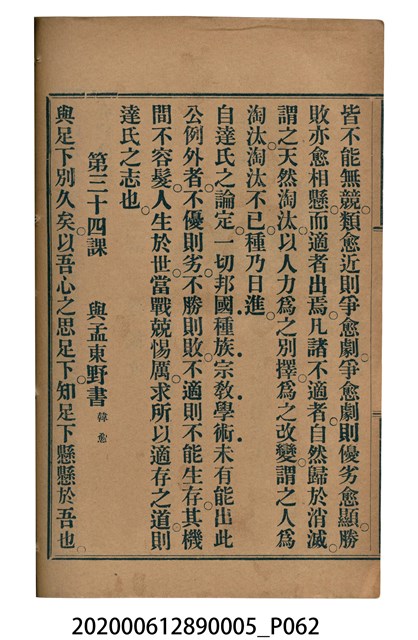 皆不能無競。類愈近則爭愈劇。爭愈劇則優劣愈顯。勝
敗亦愈相懸而適者出焉。凡諸不適者自然歸於消滅
謂之天然淘汰以人力為之別擇為之改變謂之人為
淘汰。淘汰不已。種乃日進。
自達氏之論定。一切邦國種族宗敎學術未有能出此
公例外者。不優則劣。不勝則敗。不適則不能生存。其機
間不容髮。人生於世當戰兢惕厲求所以適存之道。則
達氏之志也。
第三十四課 與孟東野書 韓愈
與足下別久矣。以吾心之思足下。知足下懸懸於吾也。
202000612890005_P062